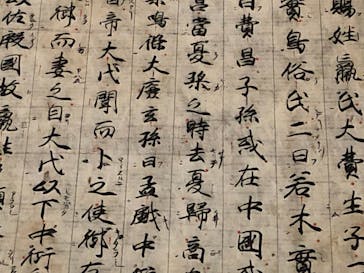 賜姓嬴氏大費生子二
實鳥俗氏二曰若木實
曰費昌子孫或在中國或
昌當夏桀之時去夏歸商
鳴條大廉玄孫曰孟戲中衍
帝大戊聞而卜之使御
御而妻之自大戊以下中衍
佐殷國故嬴姓